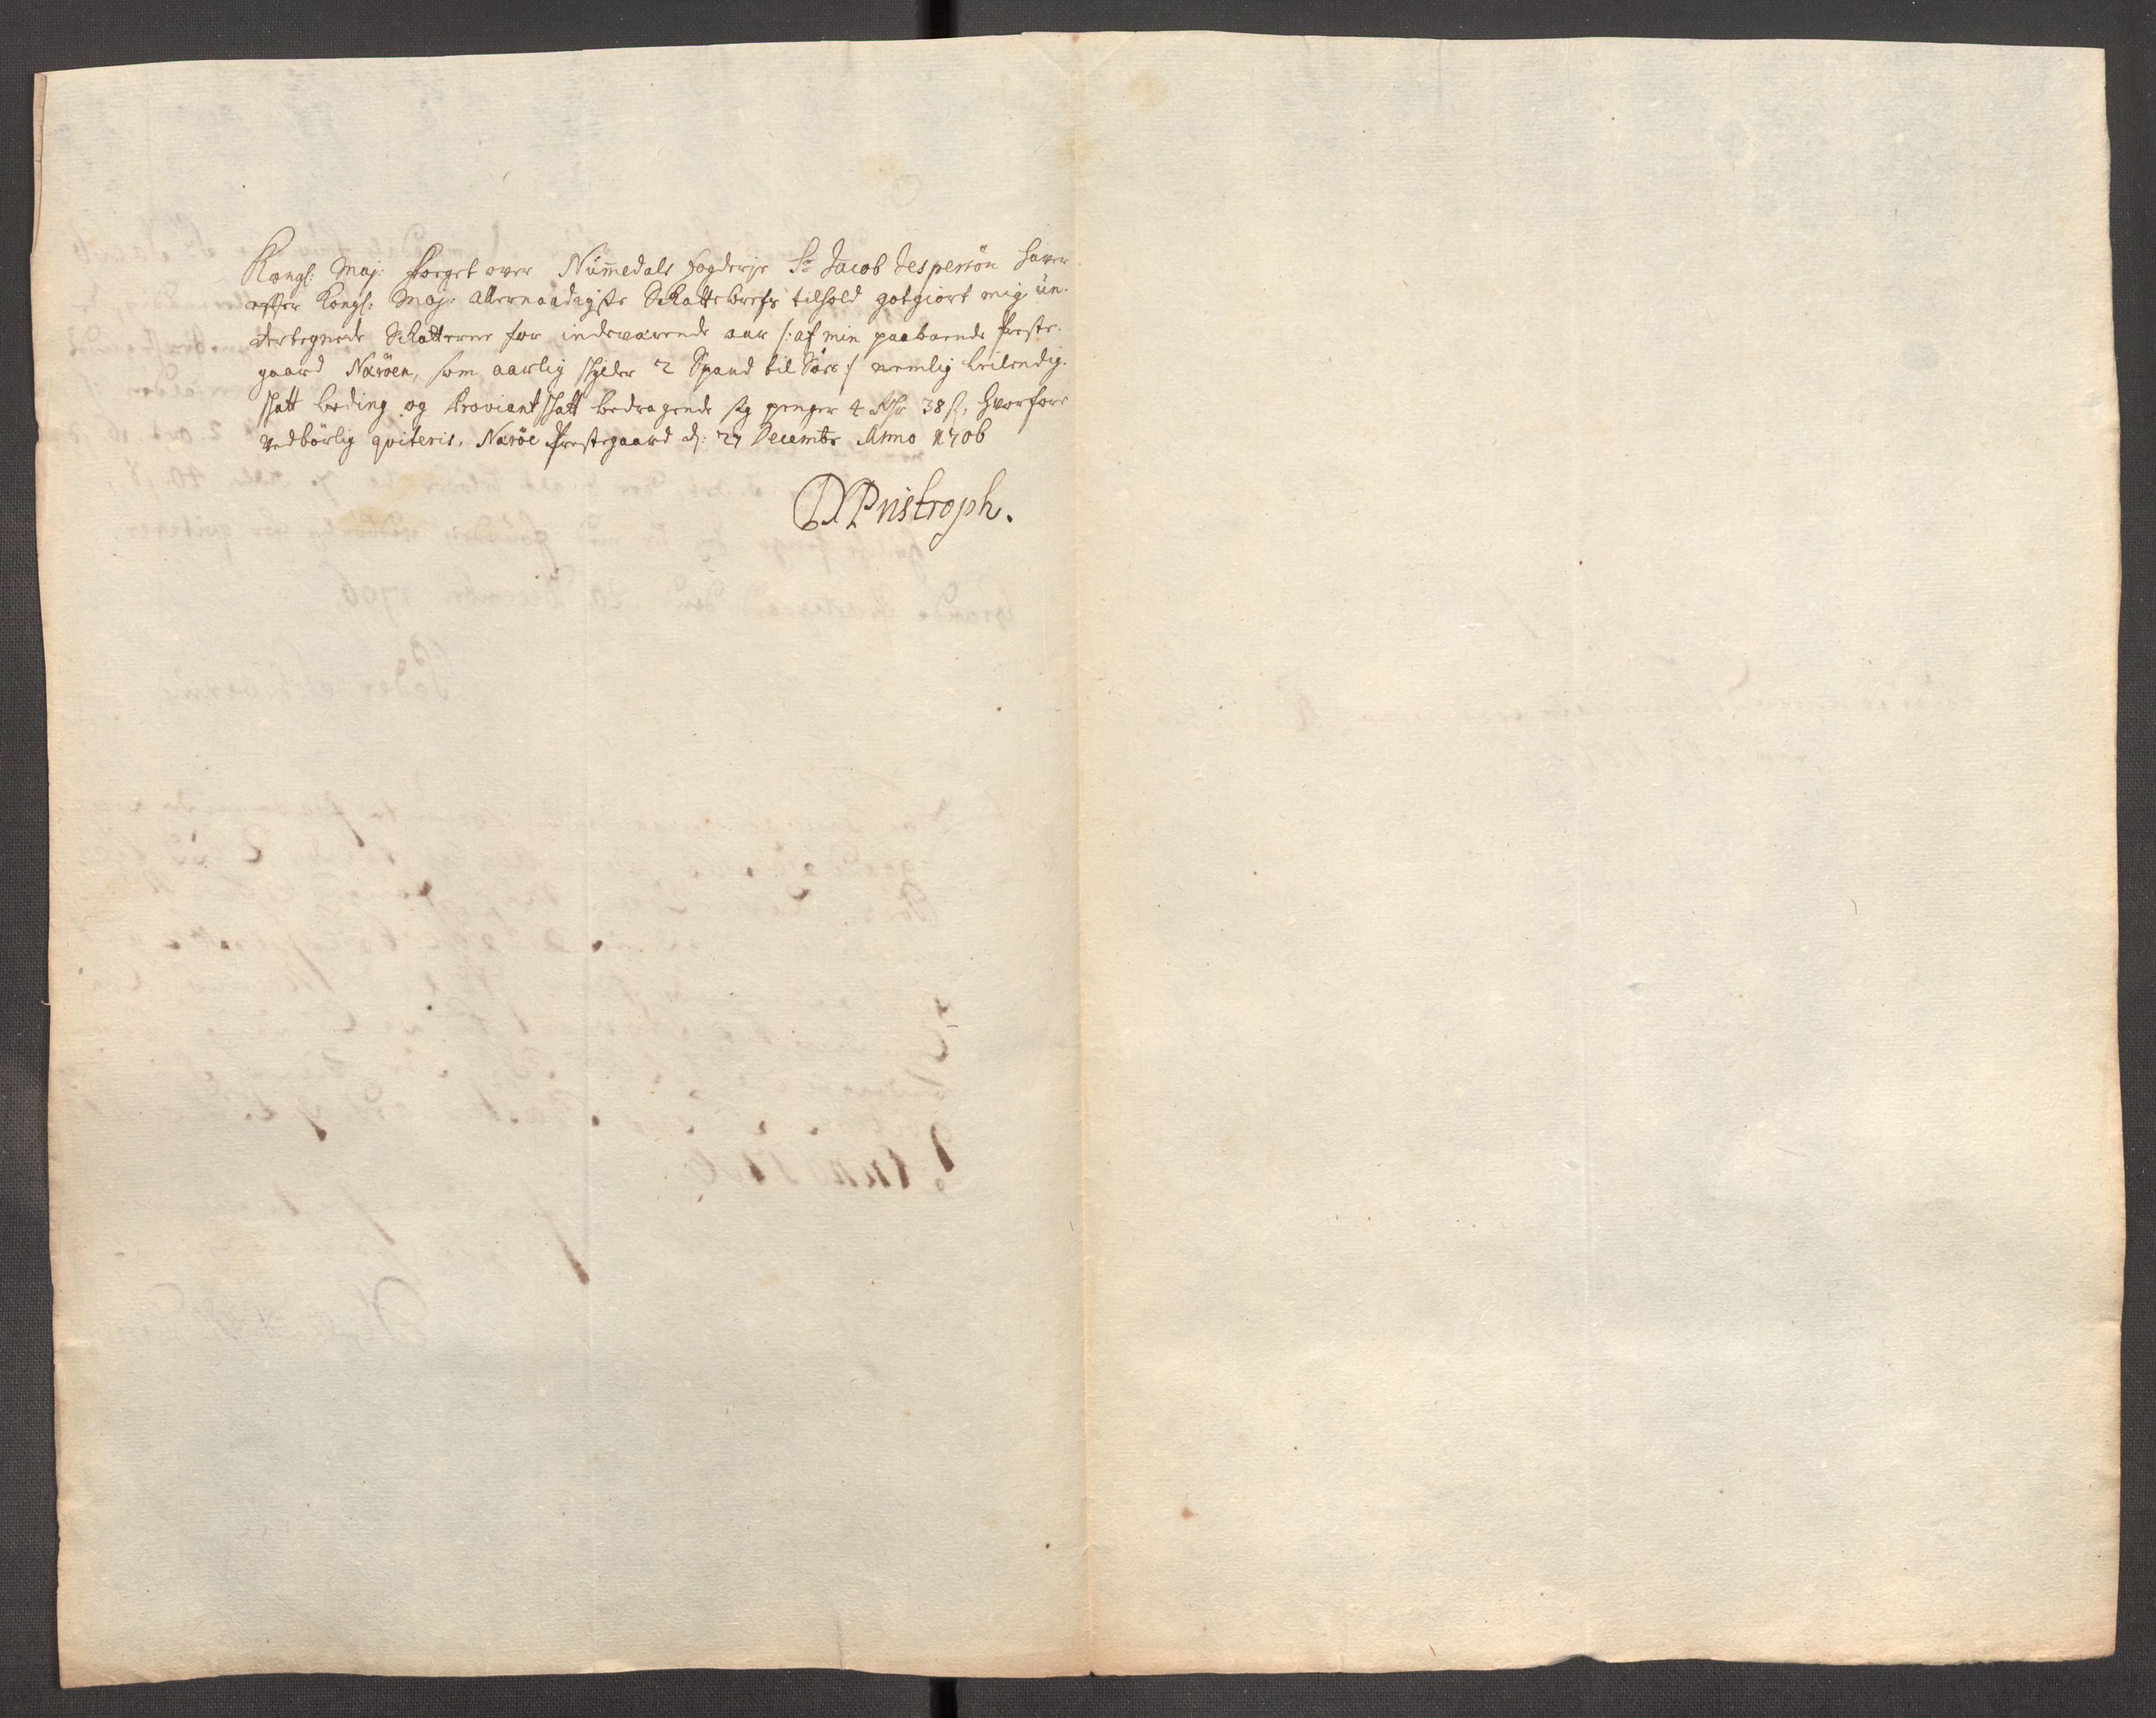 Kongl: Maj: Foeget over Nummedals fogderje Sr Jacob Jespersön haver
effter Kongl: Maj: allernaadigste Skattebrefs tilhold gotgiort mig un-
dertegnede Skatterne for indeværende aar /: af min paaboende Præste-
gaard Näröen, som aarlig skylder 2 Spand til Söes :/ nemlig leilendig-
skatt leding og Proviantskatt bedragende sig penger 4 Rdr 38 s, hvorfore
vedbörlig qviteris, Näröe Præstegaard d: 27 Decembr Anno 1706
D Pristroph.